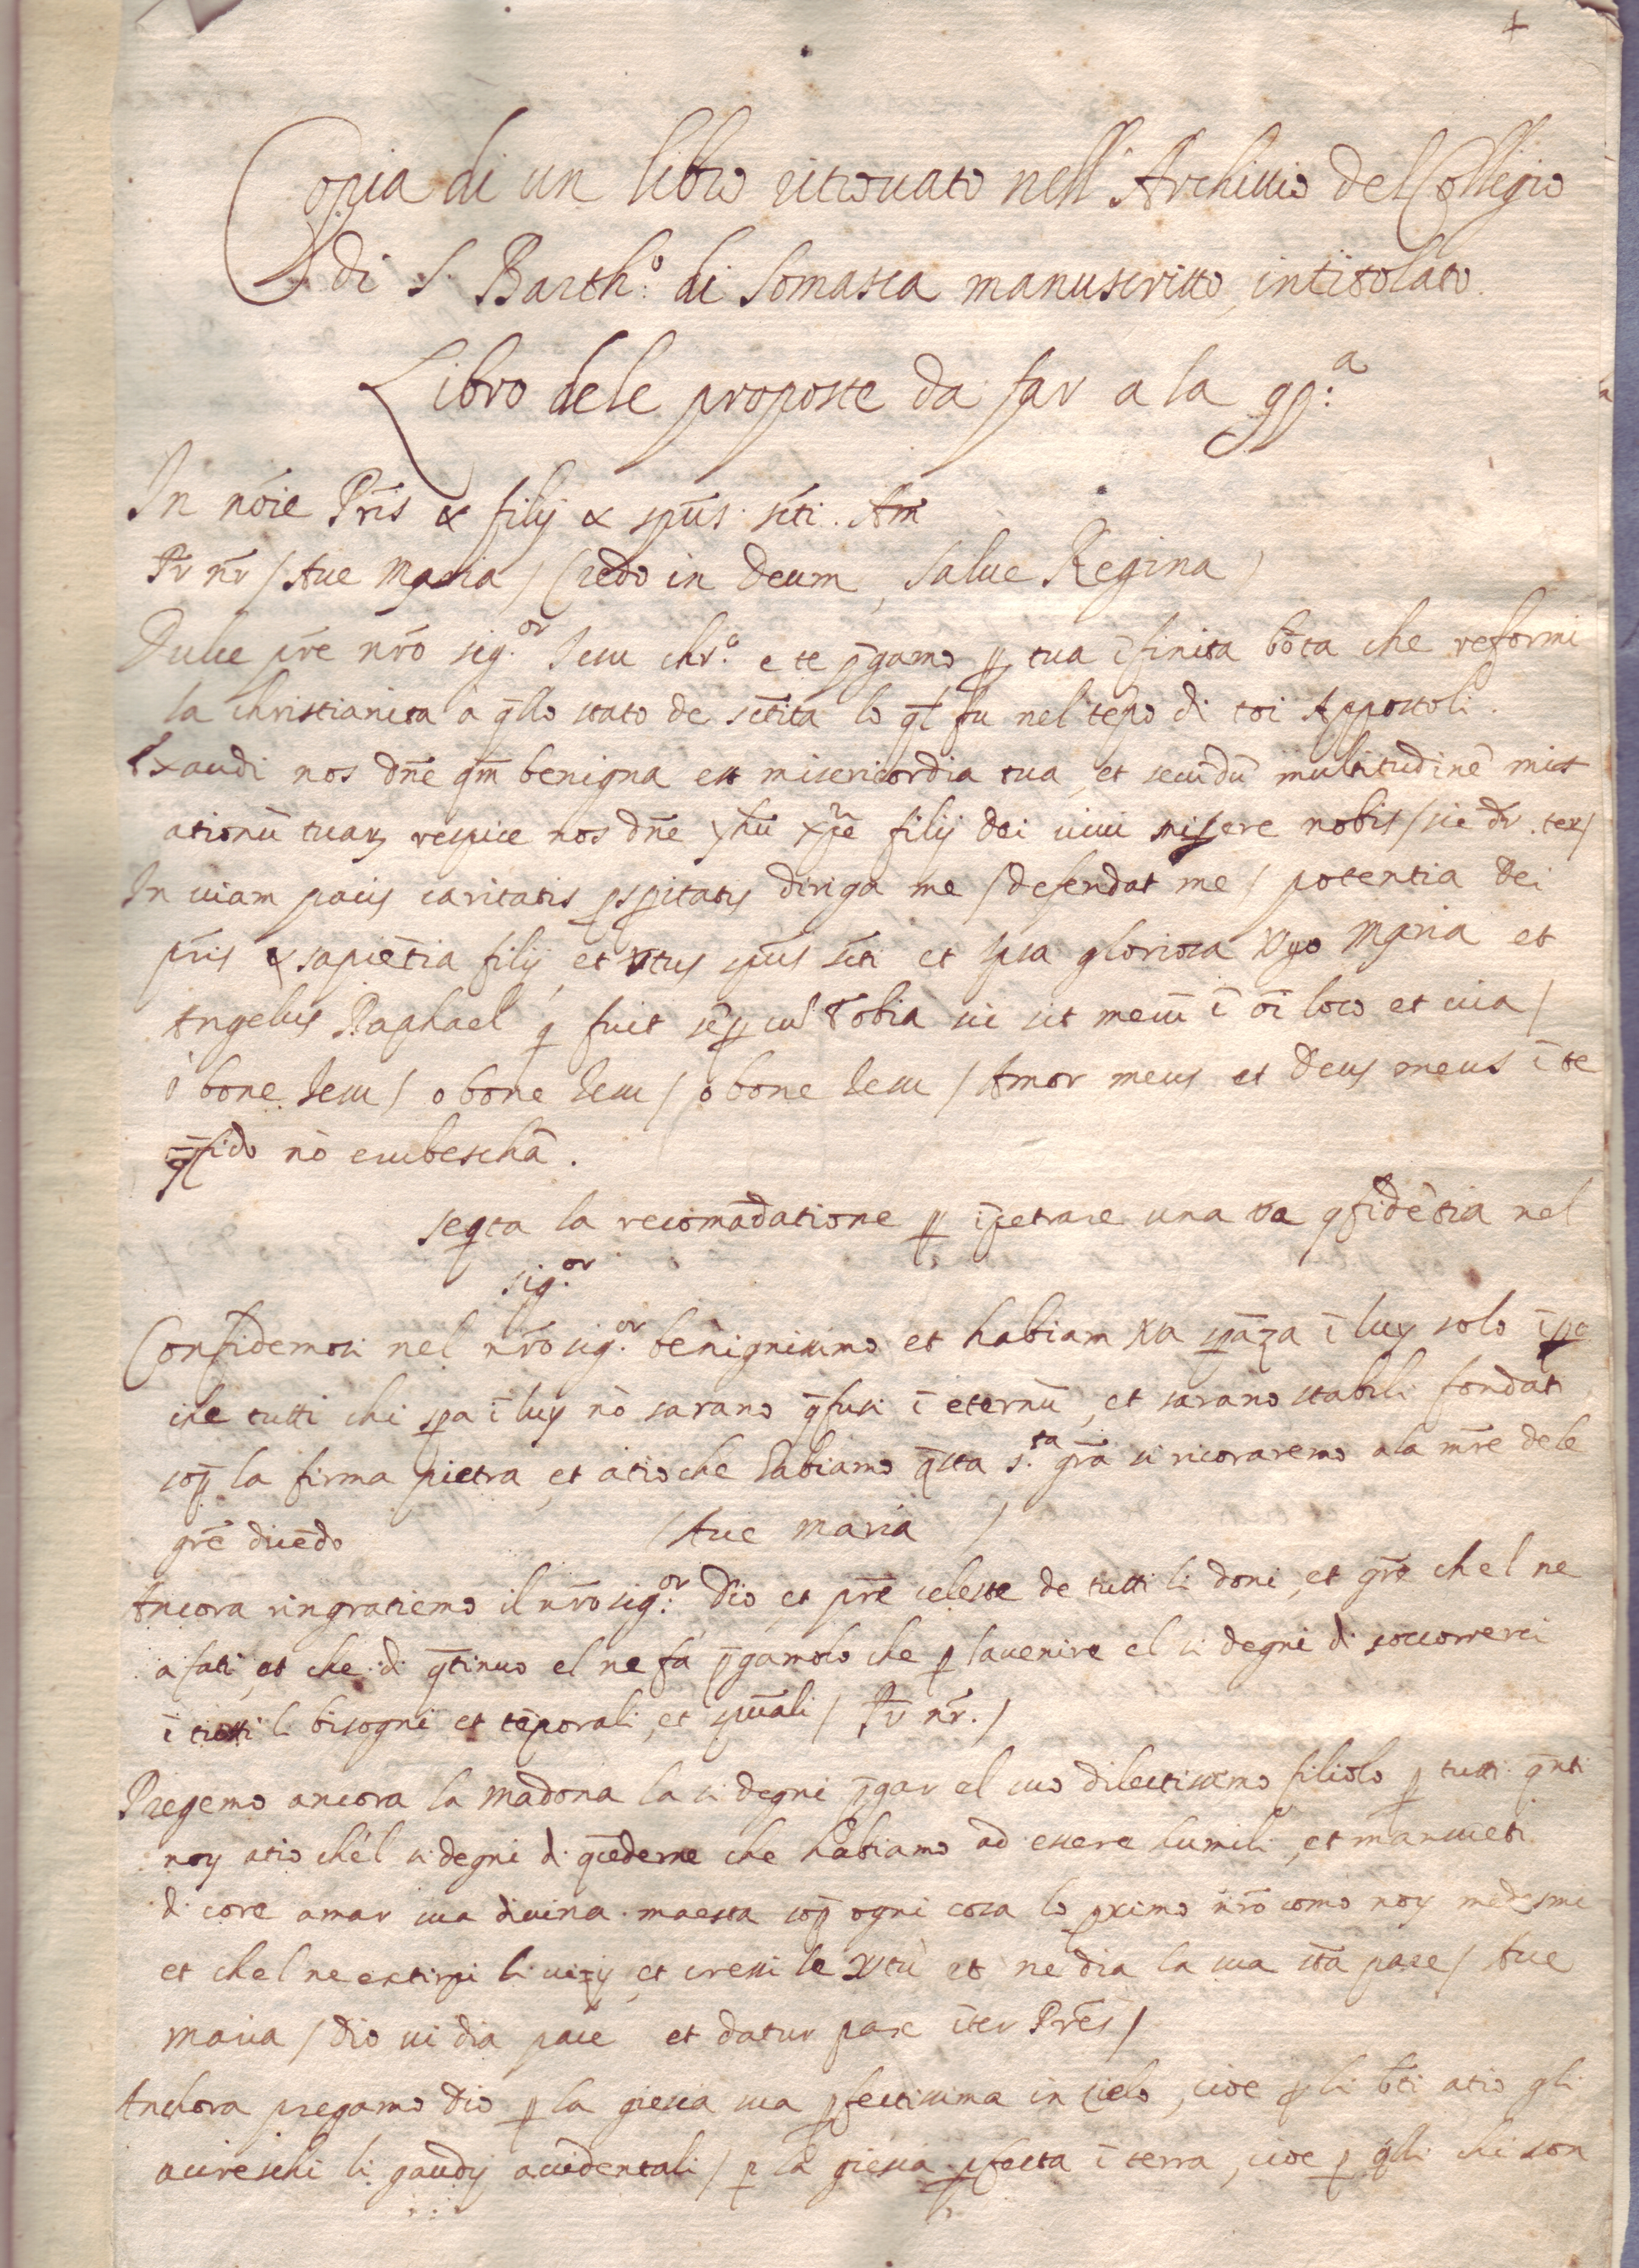 Copia di un libro ritrovato nell' Archivio del Collegio
di S. Barth.º di Somasca manuscritto, intitolato.
Libro dele proposte da far a la
In nōie Pr̄is & filij & spūs. sc̄ti. Am
Pr̄ nr̄ / Ave Maria / Credo in Deum, Salve Regina /
Dulce pr̄e nr̄o sig.or Jesu chr.o e te p̄gamo ꝑ tua īfinita bōta che reformi
la christianita a q̄llo stato de sc̄tita lo q̄l fu nel tēpo di toi Appostoli.
Exaudi nos dn̄e qm̄ benigna est misericordia tua, et secūdū multitudinē mise
ationū tuaꝝ respice nos dn̄e yhū xp̄e filij dei vivi misere nobis / sic dr̄. ter /
In viam pacis caritatis ꝓsꝑitatis diriga me / defendat me / potentia Dei
pr̄is & sapiētia filij, et vtus spūs sc̄ti et ipsa gloriosa Vgo Maria et
Angelus Raphael q̄ fuit sēꝑ cū Tobia sic sit mecū ī oī loco et via /
o bone Jesu / o bone Jesu / o bone Jesu / Amor meus et Deus meus ī te
ꝯfido nō erubeschā.
seqta la recomādatione ꝑ īpetrare una va ꝯfidētia nel
sig.or
Confidemosi nel nr̄o sig.or benignissimo et habiam va sꝑāza ī luy solo īpo
che tutti chi sꝑa ī luy nō sarano ꝯfusi ī eternū, et sarano stabili fondati
sop̄ la firma pietra, et atio che habiamo q̄sta s.ta gr̄a si ricoraremo ala mr̄e dele
gr̄e dicēdo (Ave maria /
Ancora ringratiemo il nr̄o sig.or Dio, et pr̄e celeste de tutti li doni, et gr̄e chel ne
a fati, et che di ꝯtinuo el ne fa, p̄gamolo che ꝑ lavenire el si degni di soccorrerci
ī tutti li bisogni et tēporali, et spūali / Pr̄ nr̄. /
Pregemo ancora la Madona la si degni p̄gar el suo dilectissimo filiolo ꝑ tutti q̄nti
noy atio ch'el si degni di ꝯcederne che habiamo ad essere humili, et mansueti
di core amar sua divina maesta sop̄ ogni cosa lo ꝓximo nr̄o como noy medesmi
et chel ne extirpi li vizy, et cresci le vtù et ne dia la sua st̄a pace / Ave
maria / Dio vi dia pace et datur pace īter Pr̄es /
Anchora pregamo Dio ꝑ la giesia sua ꝑfectissima in cielo, cioe ꝑ li bt̄i atio gli
accreschi li gaudij accidentali / ꝑ la giesia ꝑfecta ī terra, cioe ꝑ q̄lli chi son